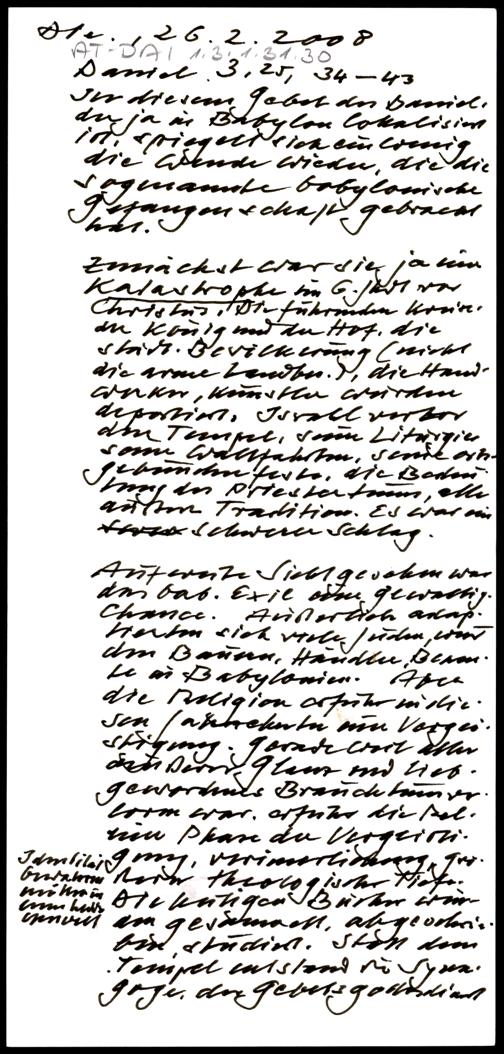 Die., 26.2.2008
AT-DAI 1.3.1.31.30
Daniel 3,25, 34–43
In diesem Gebet des Daniel,
das ja in Babylon lokalisiert
ist, spiegelt sich ein wenig
die Wende wieder, die die
sogenannte babylonische
Gefangenschaft gebracht
hat.
Zunächst war sie ja eine
Katastrophe im 6. Jhdt vor
Christus. Die führenden Kreise
der König und der Hof, die
städt. Bevölkerung (nicht
die arme Landbev.), die Hand-
werker, Künstler wurden
deportiert. Israel verlor
den Tempel, seine Liturgie
seine Wallfahrten, seine orts-
gebundenen Feste, die Bedeu-
tung des Priestertums, alle
äußere Tradition. Es war ein
schwerer Schlag.
Auf weite Sicht gesehen war
das bab. Exil eine gewaltige
Chance. Äußerlich adap-
tierten sich viele Juden, wur
den Bauern, Händler, Beam-
te in Babylonien. Aber
die Religion erfuhr in die-
sen Jahrzehnten eine Vergei-
stigung. Gerade weil aller
äußerer Glanz und lieb-
gewordenes Brauchtum ver-
loren war, erfuhr die Rel.
eine Phase der Vergeisti-
gung, Verinnerlichung, grö-
ßerer theologischer Tiefe.
Identität
bewahren
mitten in
einer heidn.
Umwelt
Die heiligen Bücher wur-
den gesammelt, abgeschrie-
ben, studiert. Statt dem
Tempel entstand die Syna-
goge, der Gebetsgottesdienst